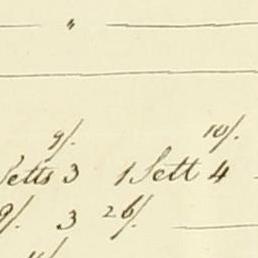 "
9/. 10/.
Setts 3 1 Sett 4
9/. 3 26/.